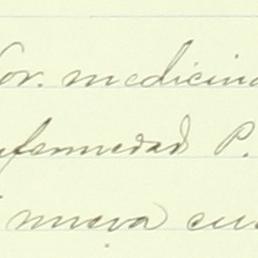 Por. medicina
nfermedad P.
nueva cu